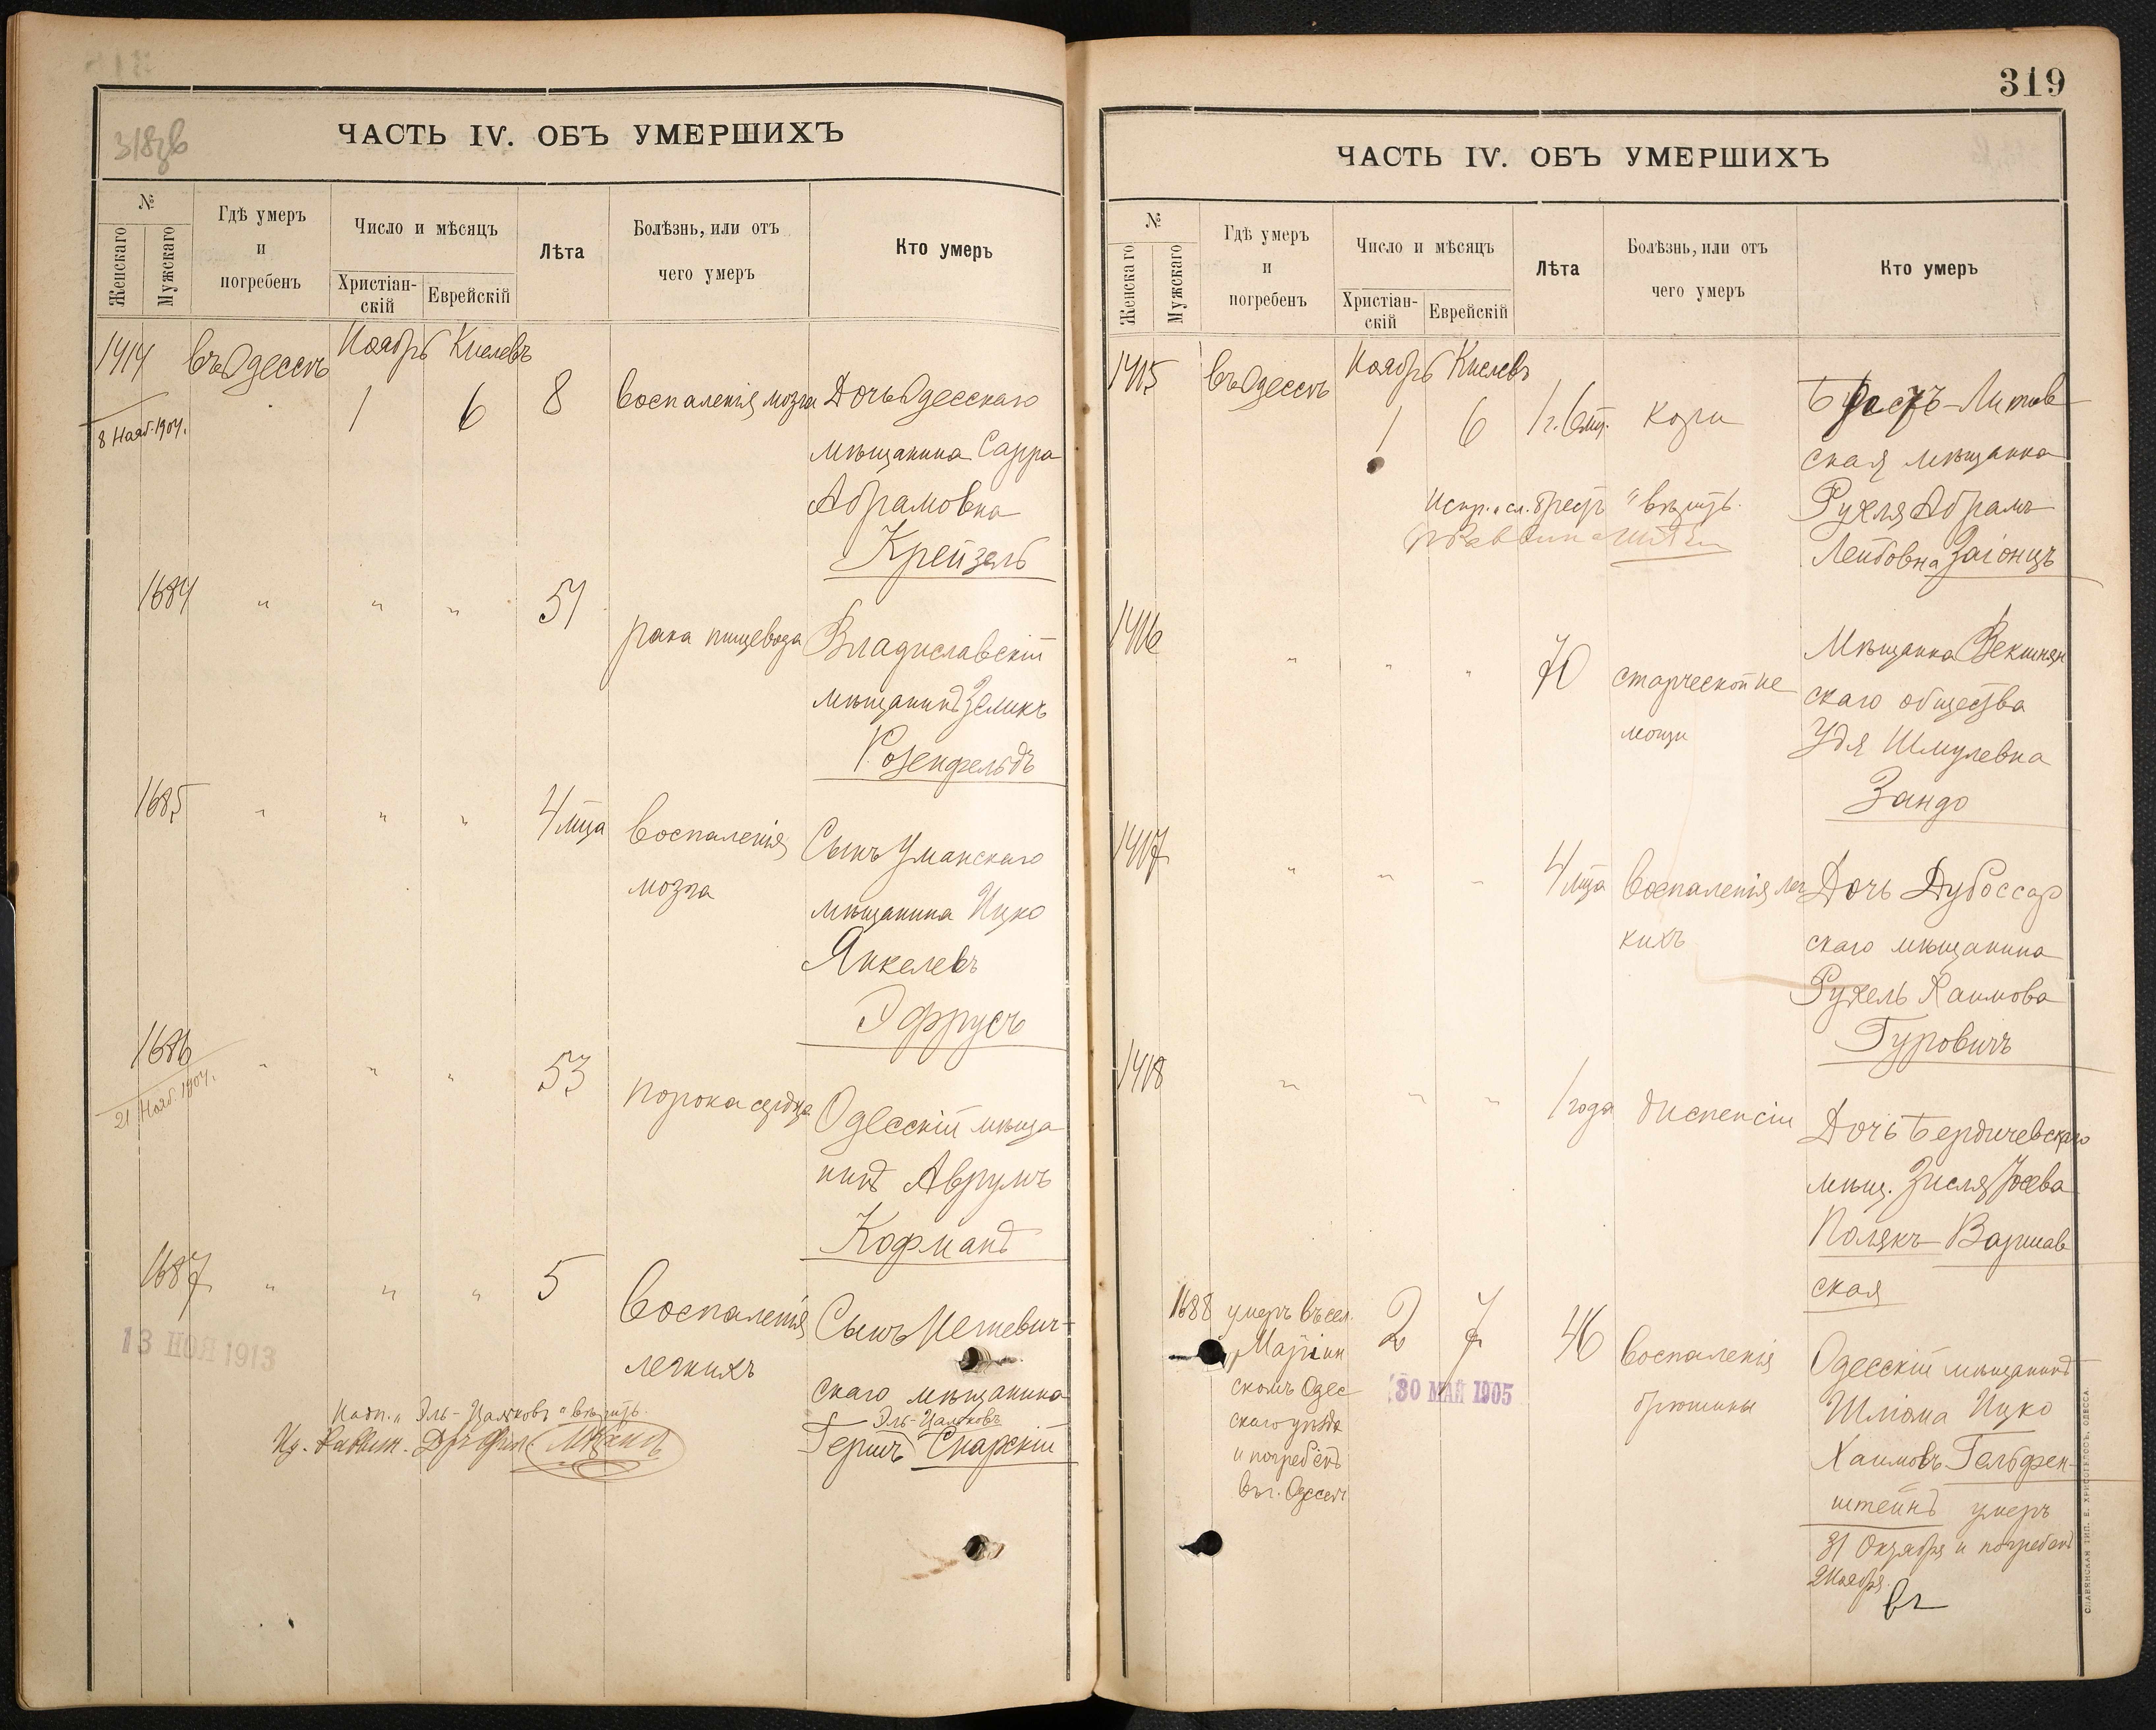 318об
ЧАСТЬ IV. ОБЪ УМЕРШИХЪ
№
Женскаго
Мужскаго
Гдѣ умеръ
и
погребенъ
Число и мѣсяцъ
Христіан-
скій
Еврейскій
Лѣта
Болѣзнь, или отъ
чего умеръ
Кто умеръ
1414 въ Одессѣ Ноябрь Кислевъ
8 Нояб. 1904.
1 6 8 воспаленія мозга Дочь Одесскаго
мѣщанина Сарра
Абрамовна
Крейзель
1684 " " " 51
рака пищевода Владиславскій
мѣщанинъ Зеликъ
Розенфельдъ
1685 " " " 4 мца воспаленія
мозга
Сынъ Уманскаго
мѣщанина Ицко
Янкелевъ
Эфрусъ
1686 " " " 53
21 Нояб. 1904.
порока сердца Одесскій мѣща
нинъ Аврумъ
Кофманъ
1687 " " " 5 воспаленія
легкихъ
Сынъ
скаго мѣщанина
Эль-Цалковъ
Гершъ Снарскій
13 НОЯ 1913
Надп. „Эль-Цалковъ“ вѣрить.
319
ЧАСТЬ IV. ОБЪ УМЕРШИХЪ
№
Женскаго
Мужскаго
Гдѣ умеръ
и
погребенъ
Число и мѣсяцъ
Христіан-
скій
Еврейскій
Лѣта
Болѣзнь, или отъ
чего умеръ
Кто умеръ
1415 въ Одессѣ Ноябрь Кислевъ
1 6 1 г. 6 мц. кори
Брестъ-Литов
ская мѣщанка
Рухля Абрамъ
Лейбовна Загонцъ
Испр. сл. „Брестъ“ вѣрить.
1416 " " " 70 старческой не
мощи
Мѣщанка Векшнян
скаго общества
Удя Шмулевна
Зандо
1417 " " " 4 мца воспаленія лег
кихъ
Дочь Дубоссар
скаго мѣщанина
Рухель Хаимова
Гуровичъ
1418 " " " 1 года диспепсіи
Дочь Бердичевскаго
мѣщ. Зисля Іосева
Полякъ-Варшав
ская
1688 умеръ въ сел.
Маріин
скомъ Одес
скаго уѣзда
и погребенъ
въ г. Одессѣ
2 7 46 воспаленія
брюшины
30 МАЙ 1905
Одесскій мѣщанинъ
Шліома Ицко
Хаимовъ Гельфен-
штейнъ умеръ
31 Октября и погребенъ
2 Ноября.
СЛАВЯНСКАЯ ТИП. Е. ХРИСОГЕЛОСЪ, ОДЕССА.